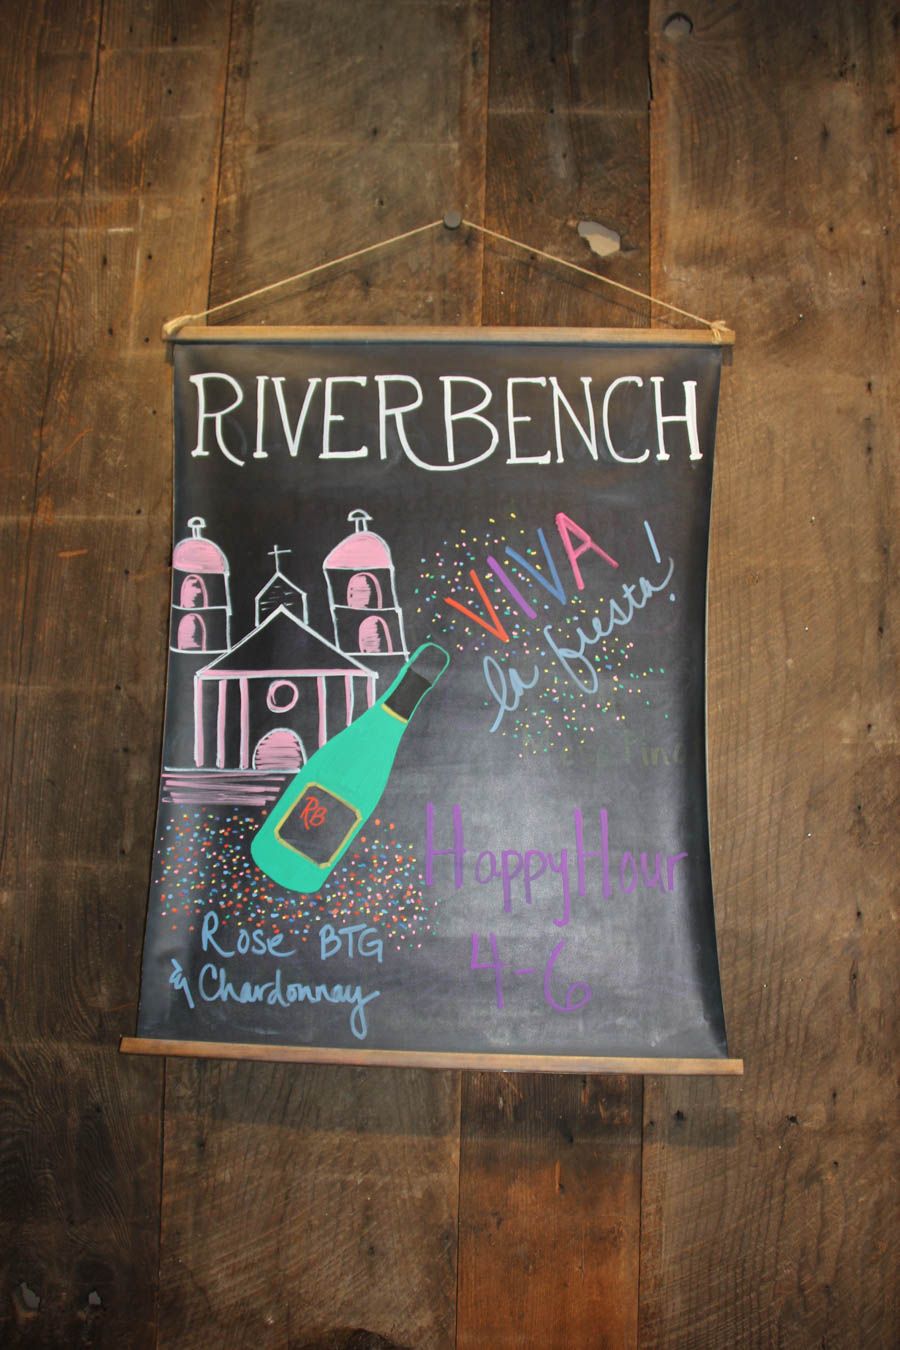 RIVERBENCH
VIVA
la fiesta!
RB
Happy Hour
4-6
Rose BTG
& Chardonnay